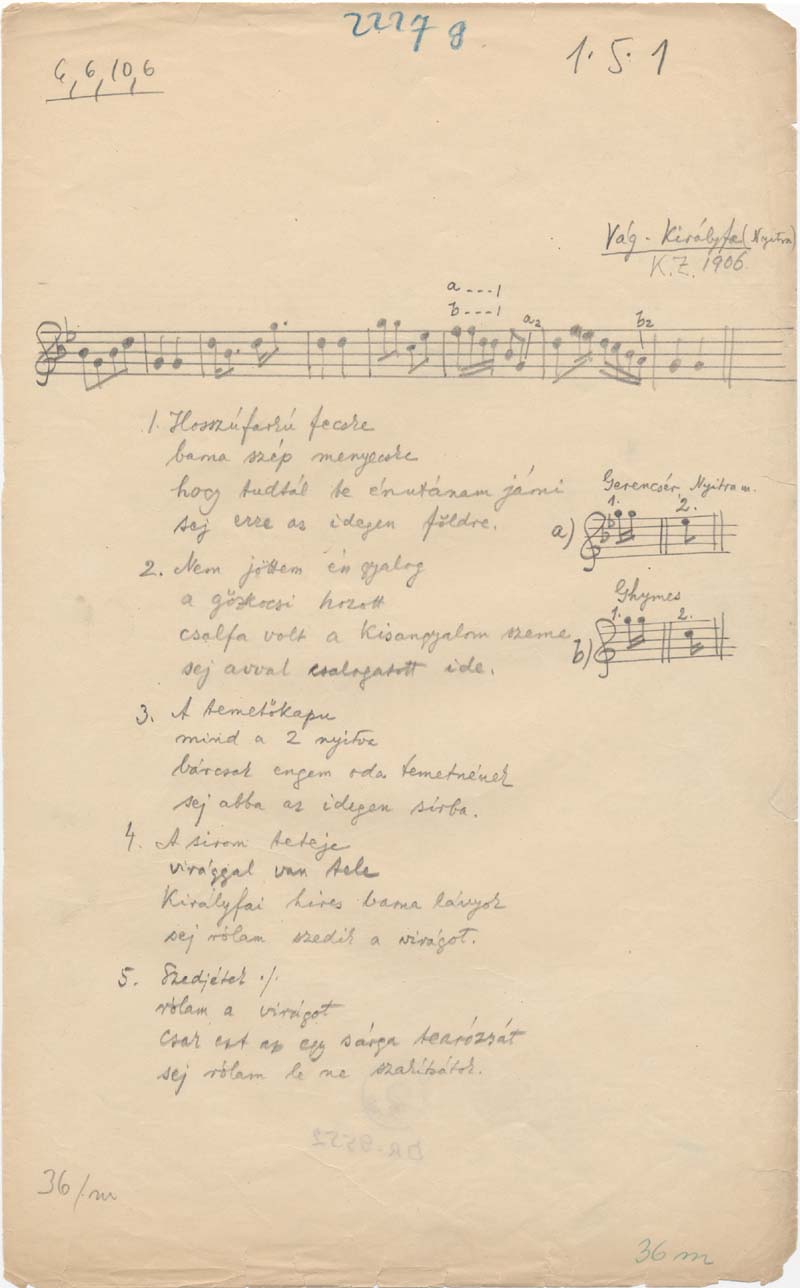 2227 g
6, 6, 10, 6
1. 5. 1
Vág-Királyfa (Nyitra)
K.Z. 1906.
a---1
b---1
a2
b2
1. Hosszúfarkú fecske
barna szép menyecske
hogy tudtál te énutánam járni
sej erre az idegen földre.
2. Nem jöttem én gyalog
a gőzkocsi hozott
csalfa volt a kisangyalom szeme
sej avval csalogatott ide.
3. A temetőkapu
mind a 2 nyitva
bárcsak engem oda temetnének
sej abba az idegen sírba.
4. A sirom teteje
virággal van tele
Királyfai híres barna lányok
sej rólam szedik a virágot.
5. Szedjétek ./.
rólam a virágot
csak ezt az egy sárga tearózsát
sej rólam le ne szakítsátok.
Gerencsér, Nyitra m.
a) 1. 2.
Ghymes
b) 1. 2.
BR-9552
36/m
36 m